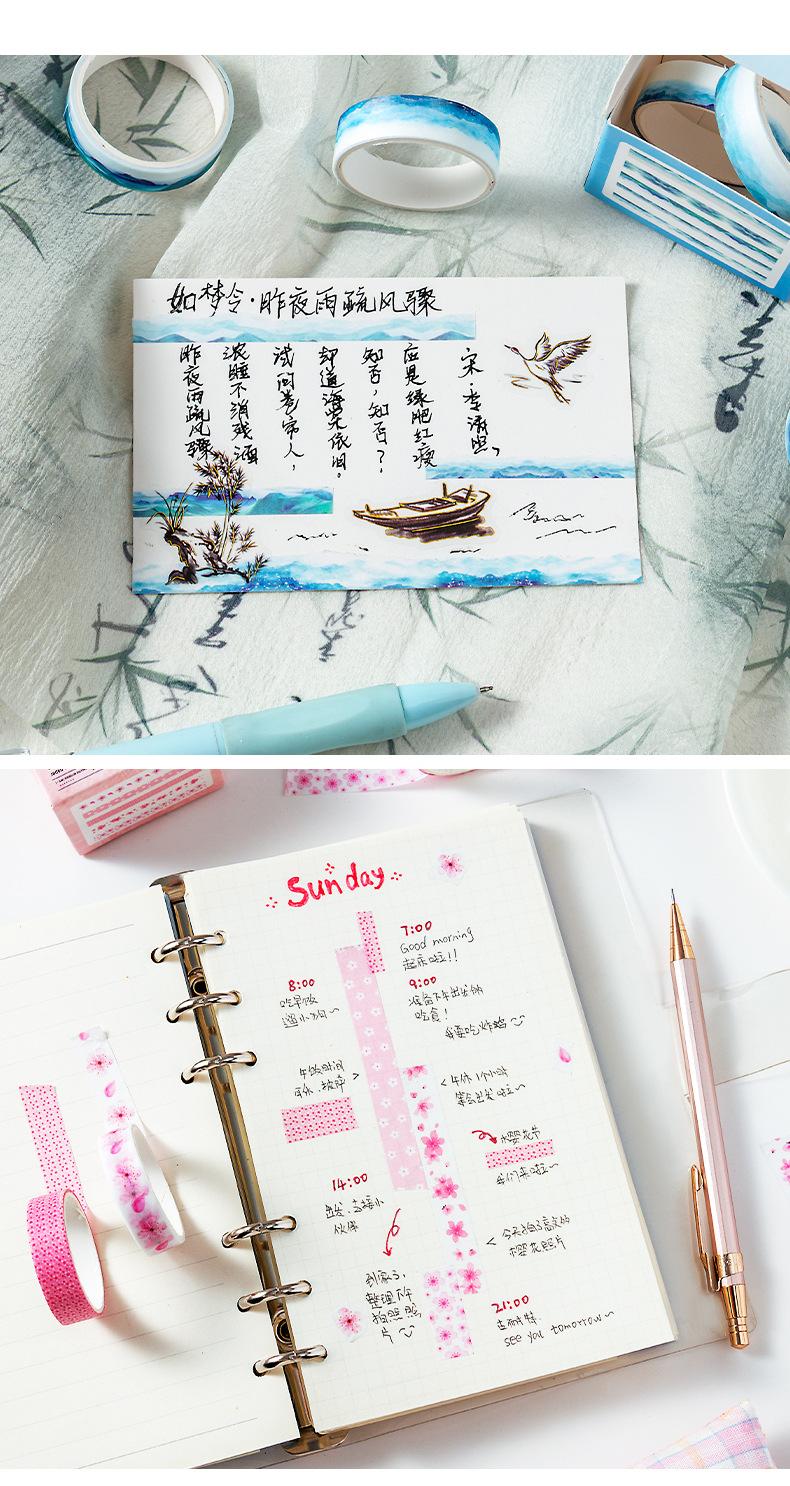 如梦令·昨夜雨疏风骤
昨夜雨疏风骤
浓睡不消残酒
试问卷帘人，
却道海棠依旧。
知否，知否？
应是绿肥红瘦
宋·李清照。
Sunday
7:00
Good morning
起床啦！！
8:00
吃早饭
遛小狗~
9:00
准备下午出发的
吃食！
我要吃炸鸡
午饭时间
<午休1个小时
等会出发啦~
樱花节
我们来啦~
14:00
出发、去接小
伙伴
<今天拍了喜欢的
樱花照片
到家了，
整理下午
拍照照
片
21:00
see you tomorrow~